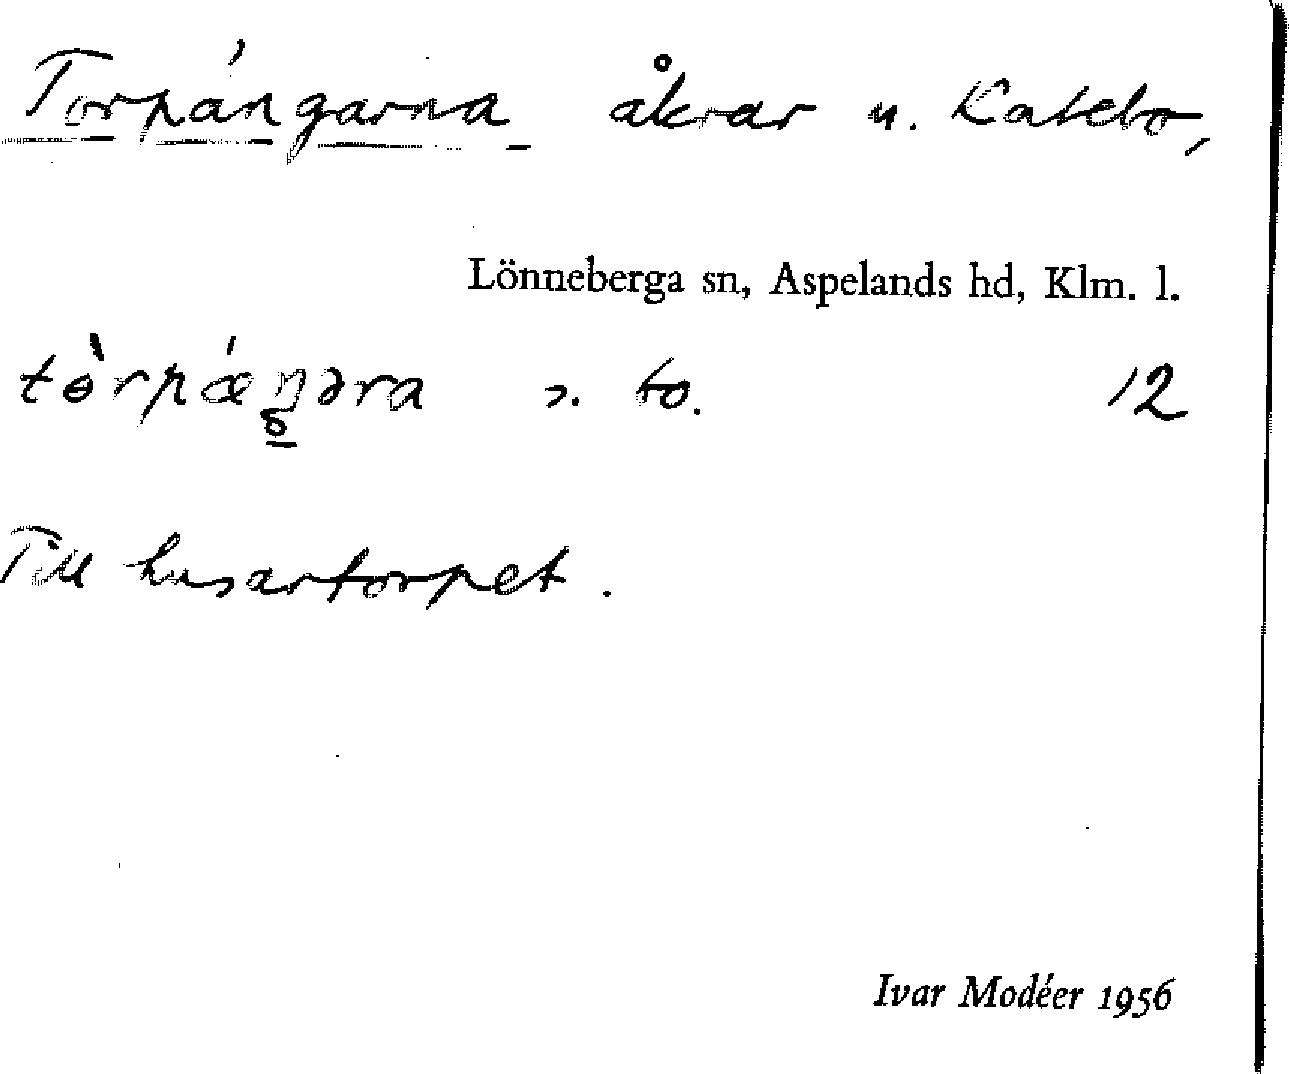 Torpängarna åkrar u. Katebo,
Lönneberga sn, Aspelands hd, Klm. l.
tòrpæ̂ŋəra to. 12
Till husartorpet.
Ivar Modéer 1956